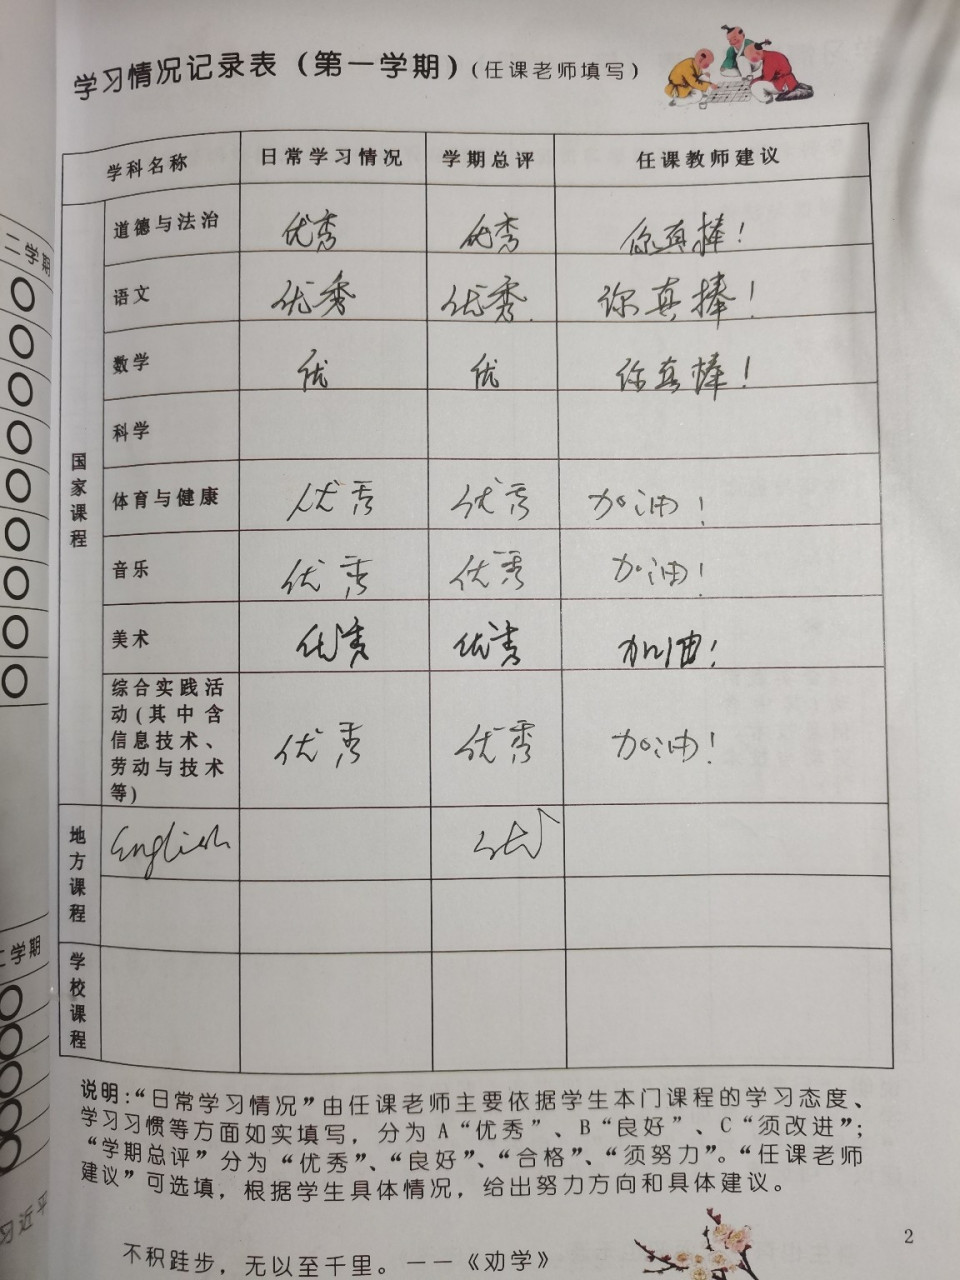 学习情况记录表（第一学期）（任课老师填写）
学科名称 日常学习情况 学期总评 任课教师建议
国家课程
道德与法治 优秀 优秀 你真棒！
语文 优秀 优秀. 你真棒！
数学 优 优 你真棒！
科学
体育与健康 优秀 优秀 加油！
音乐 优秀 优秀 加油！
美术 优秀 优秀 加油！
综合实践活
动(其中含
信息技术、
劳动与技术
等) 优秀 优秀 加油！
地方课程
English 优
学校课程
说明:“日常学习情况”由任课老师主要依据学生本门课程的学习态度、
学习习惯等方面如实填写，分为 A“优秀”、B“良好”、C“须改进”；
“学期总评”分为“优秀”、“良好”、“合格”、“须努力”。“任课老师
建议”可选填，根据学生具体情况，给出努力方向和具体建议。
不积跬步，无以至千里。——《劝学》
2
二学期
二学期